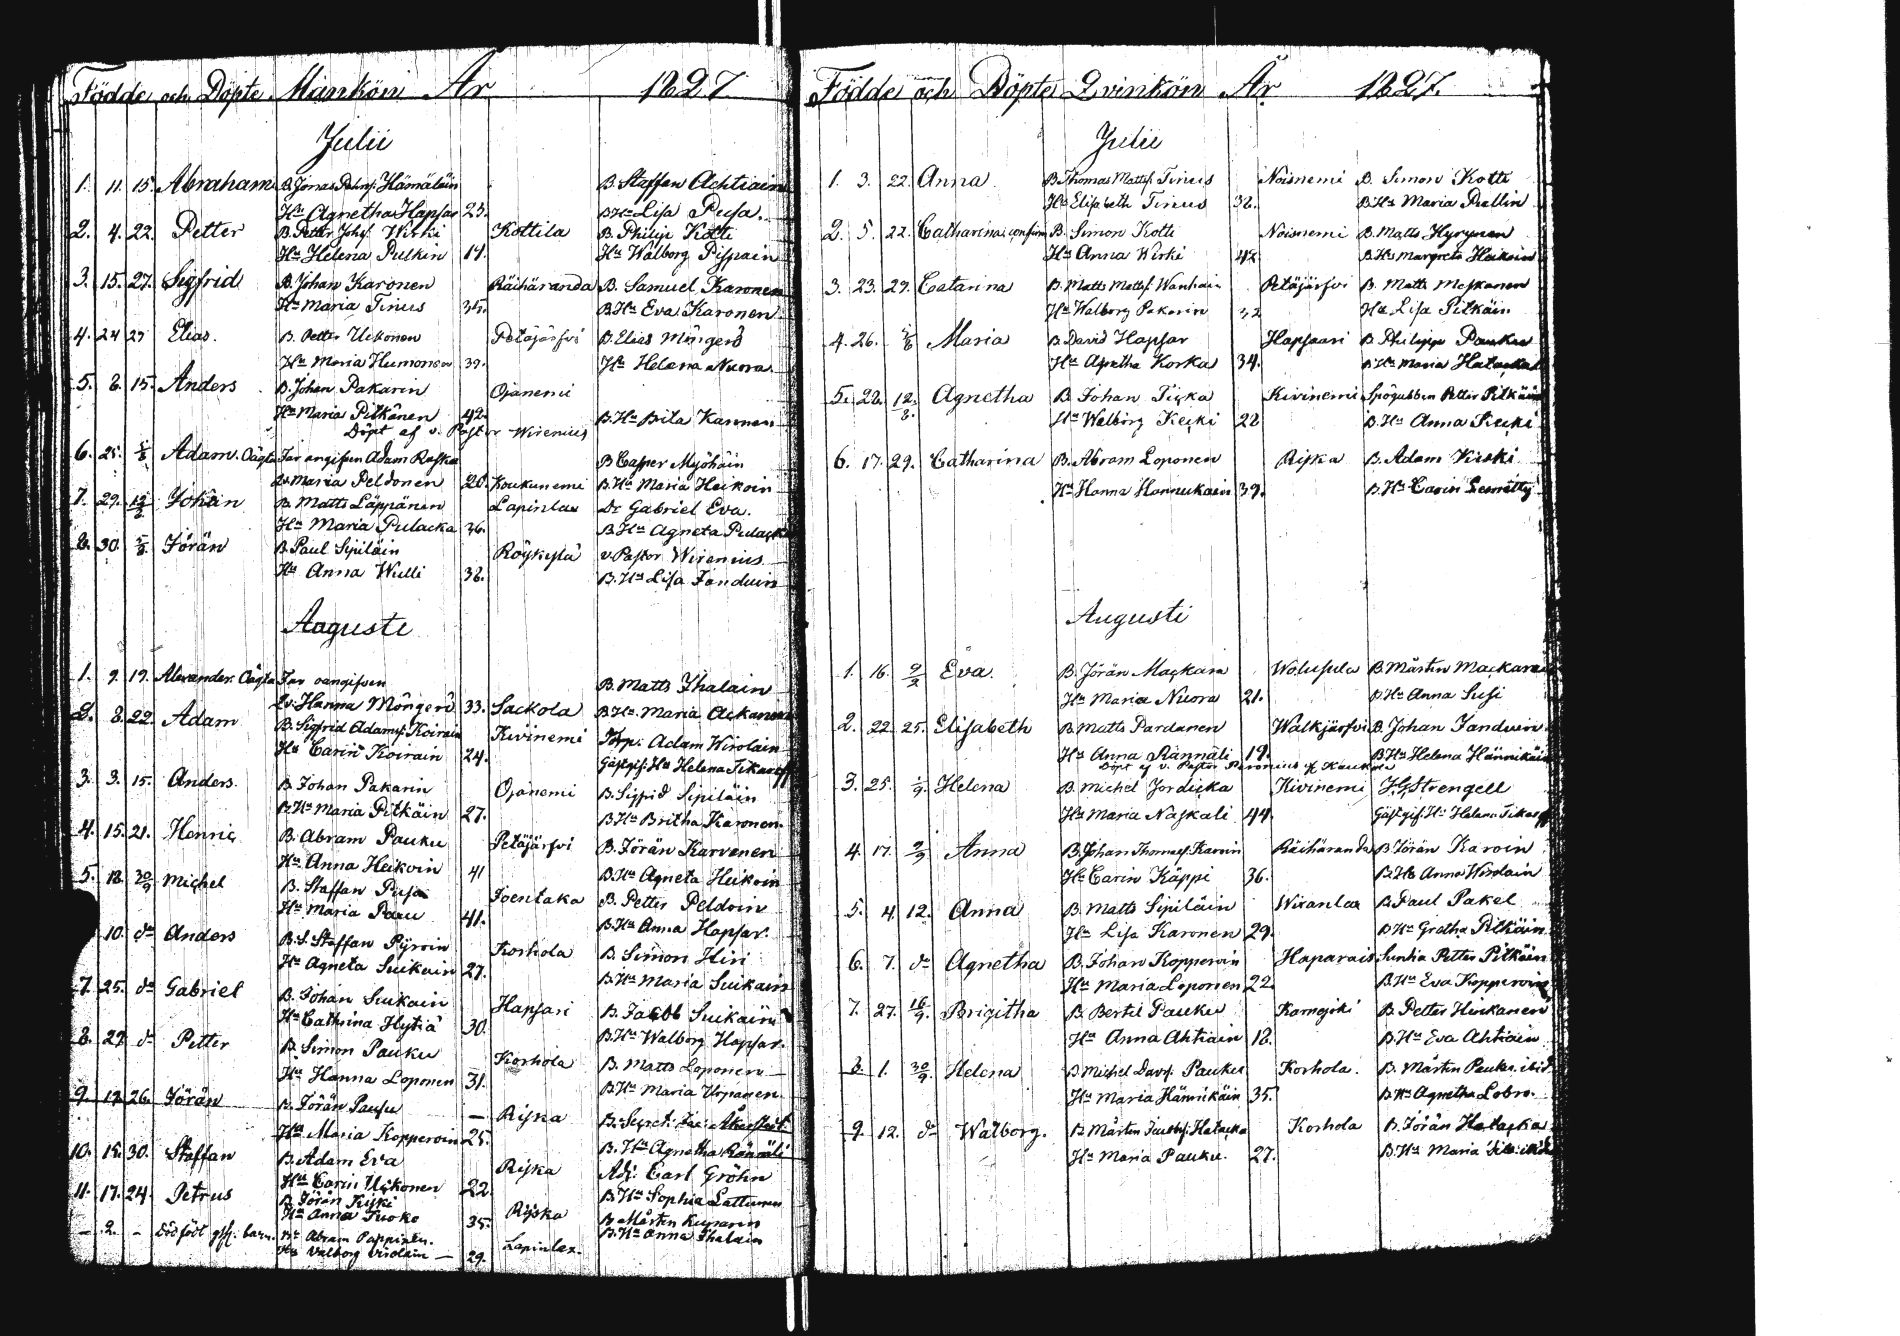 Födde och Döpte Mankön År 1827
Julii
1. 11. 15. Abraham B. Jonas Hämäläin B. Staffan Achtiain
Hu Agnetha Hapsar 23. B. Hu Lisa Pusa.
2. 4. 22. Petter B. Petter Johsf. Wirki Kottila B. Philip Kotti
Hu Helena Pulkin 19. Hu Walborg Pispain
3. 15. 27. Sigfrid B. Johan Karonen Räihäranda B. Samuel Karonen
Hu Maria Tirius 35. B Hu Eva Karonen
4. 24 29 Elias. B. Petter Uckonen Petäjärfvi B. Elias Mängerö
Hu Maria Humonen 39. Hu Helena Nuora
5. 8. 15. Anders B. Johan Pakarin Ojanemi
Hu Maria Pitkänen 42. B. Hu Brita Karonen
Döpt af v. Pastor Wirenius
6. 25. 5/8 Adam. Oägta Far angifven Adam Raska B Casper Myöhäin
Qv. Maria Peldonen 20. Koukunemi B. Hu Maria Heikoin
7. 29. 12/8 Johan B. Matts Läppänen Lapinlax Dr Gabriel Eva.
Hu Maria Pulacka 36. B Hu Agneta Pulacka
8. 30. 5/8 Jörän B. Paul Sipiläin Röykylä v Pastor Wirenius
Hu Anna Wulli 38. B. Hu Lisa Janduin
Augusti
1. 9. 19. Alexander. Oägta Far oangifven B. Matts Ihalain
Qv. Hanna Möngerö 33. Sackola B Hu Maria Ackanen
2. 8. 22. Adam B. Sigfrid Adamsf. Koirain Kivinemi Torp. Adam Wirolain
Hu Carin Koirain 24. Gästgif. Hu Helena Tikareff
3. 3. 15. Anders. B. Johan Pakarin Ojanemi B. Sigfrid Sipiläin
B Hu Maria Pitkäin 27. B Hu Britha Karonen.
4. 15. 21. Henric B. Abram Pauku Petäjärfvi B. Jörän Karvenen
Hu Anna Heikoin 41 B. Hu Agneta Heikoin
5. 18. 30/9 Michel B. Staffan Pusa Joentaka B. Petter Peldoin
Hu Maria Paau 41. B. Hu Anna Hapsar.
10. do Anders B. S. Staffan Pyroin Korhola B. Simon Hiri
Hu Agneta Suikain 27. B. Hu Maria Suikain
7. 25. do Gabriel B. Johan Suikain Hapsari B. Jacob Suikain
Hu Cathrina Hytiä 30. B. Hu Walborg Hapsar.
8. 29 do Petter B. Simon Pauku Korhola B. Matts Loponen
Hu Hanna Loponen 31. B. Hu Maria Urpanen
9. 19. 26. Jörän B. Jörän Pauku — Riska
Hu Maria Kopperoin 25. B. Hu Agnetha Rännäli
10. 15. 30. Staffan B. Adam Eva Riska Adj: Carl Gröhn
Hu Carin Uckonen 22. B Hu Sophia Lattunen
11. 17. 24. Petrus B. Jörän Kiski Riska B Mårten Kuparin
Hu Anna Kioko 35. B. Hu Anna Ihalain
— 2. — Dödfödt goss. barn. Br Abram Pappinen. Lapinlax.
Hu Valborg Virolain — 29.
Födde och Döpte Qvinkön År 1827.
Julii
1. 3. 22. Anna B Thomas Mattsf. Tirius Noisnemi B. Simon Kotti
Hu Elisabeth Tirius 38. B Hu Maria Pullin
2. 5. 22. Catharina confirm B. Simon Kotti Noisnemi B. Matts Hyrynen
Hu Anna Wirki 42 B Hu Margreta Heikoin
3. 23. 29. Catarina B. Matts Mattsf. Wanhain Petäjärfvi B. Matts Meskanen
Hu Walborg Pakarin 32 Hu Lisa Pitkäin
4. 26. 5/8 Maria B. David Hapsar Hapsaari B Philippa Pauku
Hu Agnetha Korka 34. B Hu Maria Hatacka
5. 28. 12/8. Agnetha B. Johan Piska Kivinemi Spögubben Petter Pitkäin
Hu Walborg Kecki 28 B. Hu Anna Kecki
6. 17. 29. Catharina B. Abram Loponen Riska B. Adam Kiski
Hu Hanna Hannukain 39. B. Hu Carin Leinätty
Augusti
1. 16. 9/2 Eva. B. Jörän Mackain Wolusula B Mårten Mackarain
Hu Maria Nuora 21. B Hu Anna Susi
2. 22. 25. Elisabeth B Matts Pardanen Walkjärfvi B. Johan Janduin
Hu Anna Rännäli 19. B Hu Helena Hännikäin
Döpt af v. Pastor Poronius i Kaukola
3. 25. 1/9. Helena B. Michel Jordicka Kivinemi J. G. Strengell
Hu Maria Naskali 44. Gästgif. Hu Helena Tikareff
4. 17. 2/9 Anna B. Johan Thomasf. Karvin Räihäranda B Jörän Karoin
Hu Carin Käppi 36. B. Hu Anna Wirolain
5. 4. 12. Anna B. Matts Sipiläin Wiranlax B. Paul Pakel
Hu Lisa Karonen 29. B Hu Gretha Pitkäin
6. 7. do Agnetha B. Johan Kopperoin Haparais Suntia Petter Pitkäin
Hu Maria Loponen 22. B. Hu Eva Kopperoin
7. 27. 16/9. Brigitha B. Bertil Pauku Karnojoki B. Petter Hinkanen
Hu Anna Ahtiain 18. B. Hu Eva Ahtiain
8. 1. 30/9. Helena B Michel Davs. Pauku Korhola. B. Mårten Pauku ibid.
Hu Maria Hännikäin 35. B Hu Agnetha Lobro.
9. 12. do Walborg. B Mårten Jacobsf. Hatacka Korhola B. Jörän Hatacka
Hu Maria Pauku. 27. B. Hu Maria